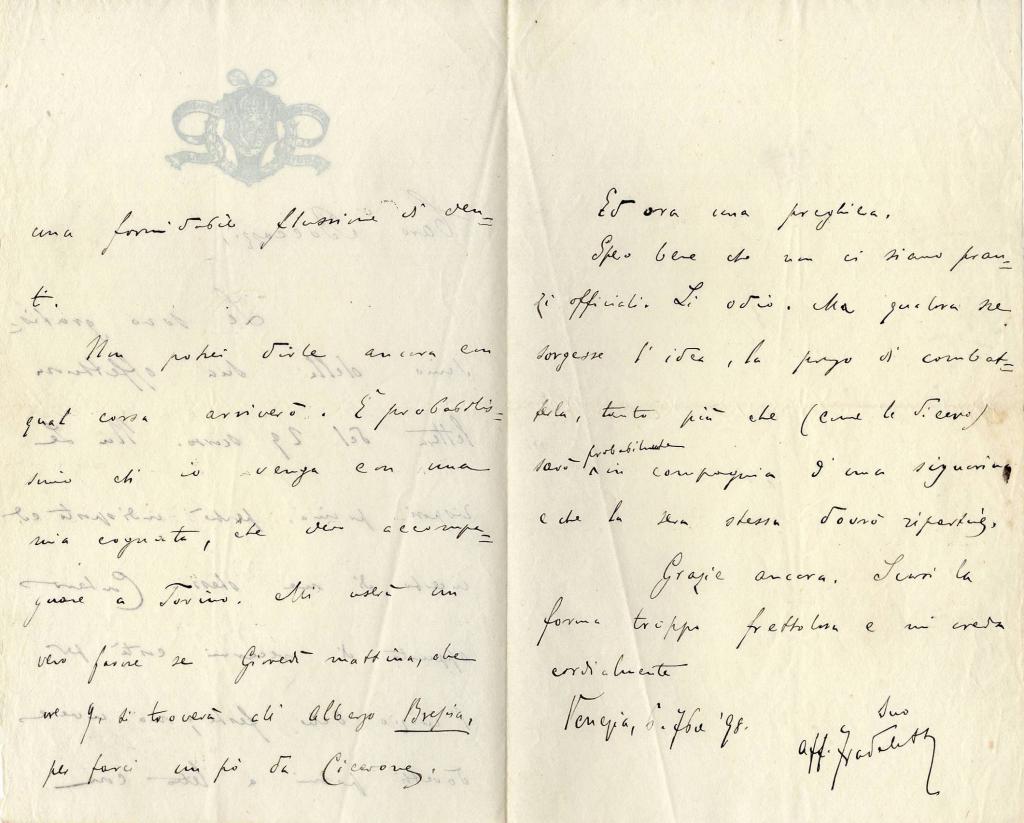 una formidabile flussione di den=
ti.
Non potrei dirle ancora con
qual corsa arriverò. È probabilis-
simo ch'io venga con una
mia cognata, che devo accompa=
gnare a Torino. Mi userà un
vero favore se Giovedì mattina, alle
ore 9, si troverà all'Albergo Brescia,
per farci un pò da Cicerone.
Ed ora una preghiera.
Spero bene che non ci siano pran=
zi officiali. Li odio. Ma qualora ne
sorgesse l'idea, la prego di combat=
terla, tanto più che (come le dicevo)
sarò probabilmente in compagnia d'una signorina
e che la sera stessa dovrò ripartire.
Grazie ancora. Scusi la
forma troppo frettolosa e mi creda
cordialmente
Venezia, 6. 7bre '98.
Suo
aff. Fradeletto